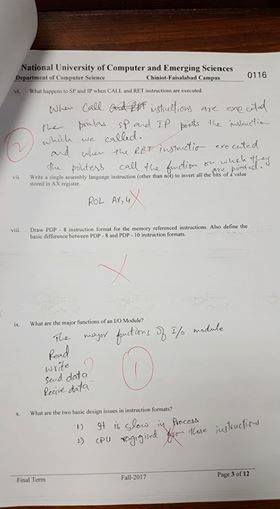 National University of Computer and Emerging Sciences
Department of Computer Science Chiniot-Faisalabad Campus 0116
vi. What happens to SP and IP when CALL and RET instructions are executed.
When Call and RET instructions are executed
the pointers SP and IP points the instruction
2 which we called.
and when the RET instruction executed
the pointers call the function on which they are pointed.
vii. Write a single assembly language instruction (other than not) to invert all the bits of a value
stored in AX register.
ROL AX, 4
viii. Draw PDP - 8 instruction format for the memory referenced instructions. Also define the
basic difference between PDP - 8 and PDP - 10 instruction formats.
ix. What are the major functions of an I/O Module?
The major functions of I/o module
Read
write
Send data
Recive data
1
x. What are the two basic design issues in instruction formats?
1) It is slow in Process
2) CPU from these instructions
Final Term Fall-2017 Page 3 of 12